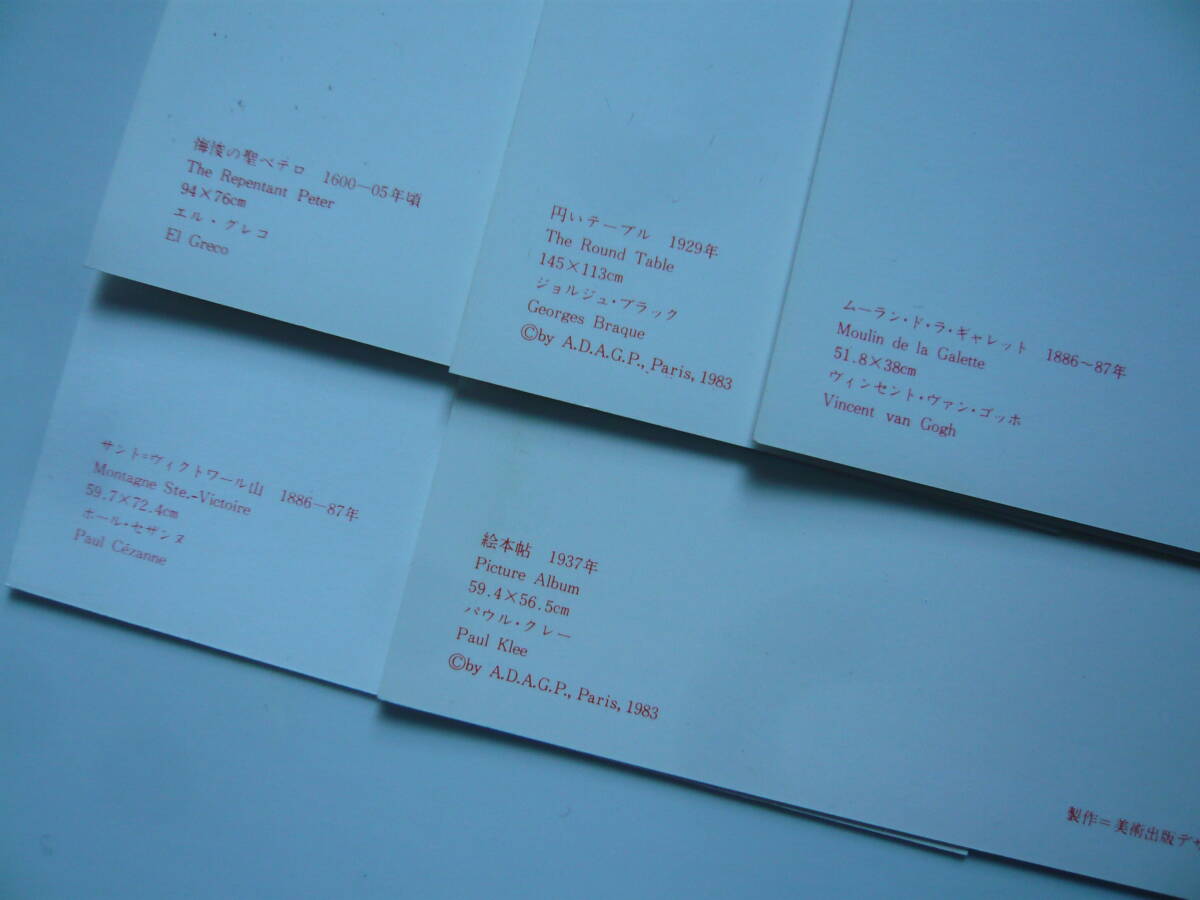 悔悛の聖ペテロ　1600—05年頃
The Repentant Peter
94×76cm
エル・グレコ
El Greco
円いテーブル　1929年
The Round Table
145×113cm
ジョルジュ・ブラック
Georges Braque
©by A.D.A.G.P., Paris, 1983
ムーラン・ド・ラ・ギャレット　1886〜87年
Moulin de la Galette
51.8×38cm
ヴィンセント・ヴァン・ゴッホ
Vincent van Gogh
サント=ヴィクトワール山　1886—87年
Montagne Ste.-Victoire
59.7×72.4cm
ポール・セザンヌ
Paul Cézanne
絵本帖　1937年
Picture Album
59.4×56.5cm
パウル・クレー
Paul Klee
©by A.D.A.G.P., Paris, 1983
製作＝美術出版デザ